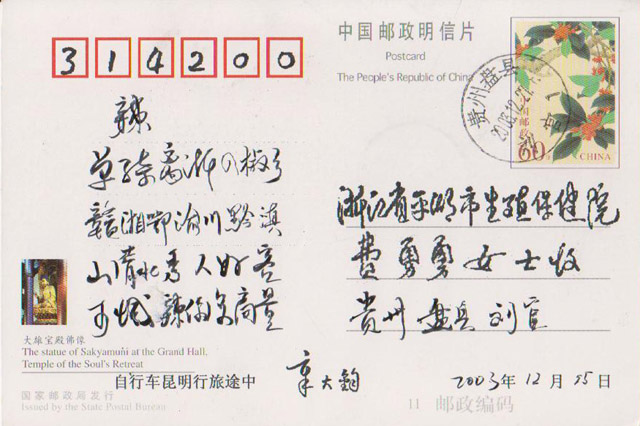 314200
中国邮政明信片
Postcard
The People's Republic of China
贵州盘县
2003.12.2
中国邮政
60分
CHINA
辣
赣湘鄂渝川黔滇
山清水秀人好客
浙江省平湖市生殖保健院
费勇勇女士收
贵州盘县刘官
大雄宝殿佛像
The statue of Sakyamuni at the Grand Hall,
Temple of the Soul's Retreat
自行车昆明行旅途中
章大钧
2003年12月25日
国家邮政局发行
Issued by the State Postal Bureau
11 邮政编码